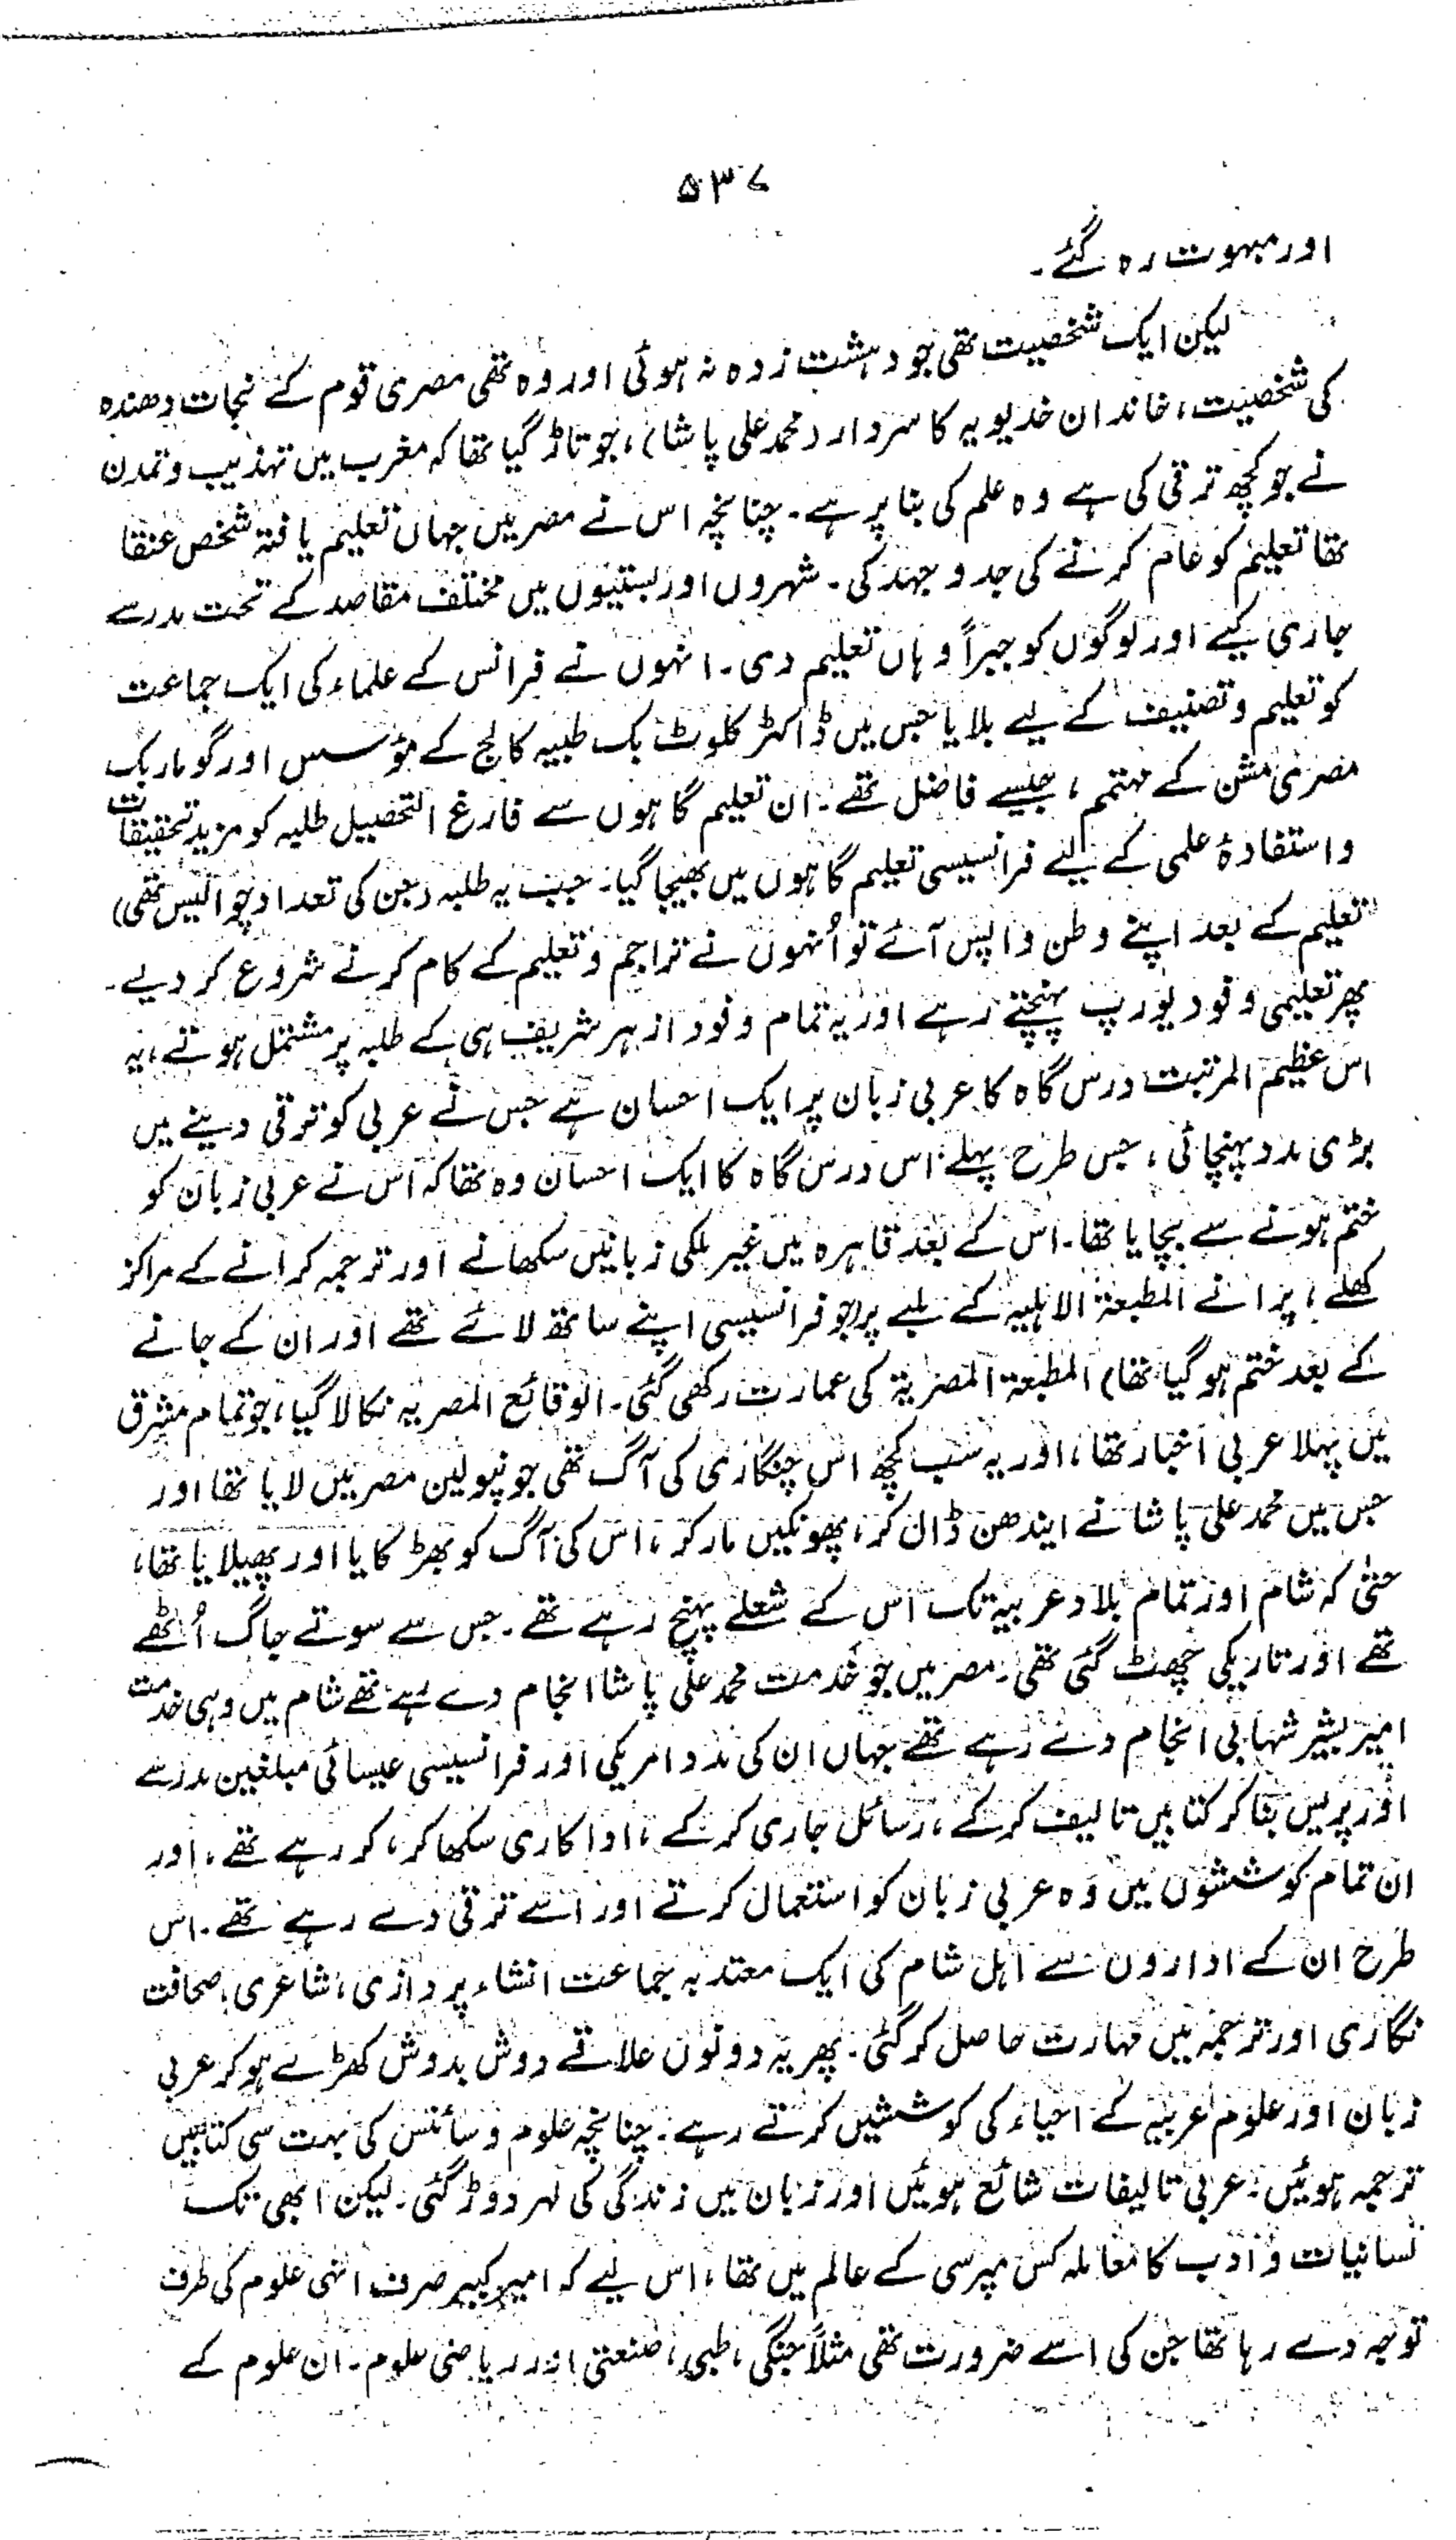 ۵۳۷
اور مبہوت رہ گئے۔
لیکن ایک شخصیت تھی جو دہشت زدہ نہ ہوئی اور وہ تھی مصری قوم کے نجات دھندہ
کی شخصیت، خاندان خدیویہ کا سردار (محمد علی پاشا)، جو تاڑ گیا تھا کہ مغرب میں تہذیب و تمدن
نے جو کچھ ترقی کی ہے وہ علم کی بنا پر ہے۔ چنانچہ اس نے مصر میں جہاں تعلیم یافتہ شخص عنقا
تھا تعلیم کو عام کرنے کی جدوجہد کی۔ شہروں اور بستیوں میں مختلف مقاصد کے تحت مدرسے
جاری کیے اور لوگوں کو جبراً وہاں تعلیم دی۔ انہوں نے فرانس کے علماء کی ایک جماعت
کو تعلیم و تصنیف کے لیے بلایا جس میں ڈاکٹر کلوٹ بک طبیہ کالج کے مؤسس اور گومار بک
مصری مشن کے مہتمم، جیسے فاضل تھے۔ ان تعلیم گاہوں سے فارغ التحصیل طلبہ کو مزید تحقیقات
و استفادۂ علمی کے لیے فرانسیسی تعلیم گاہوں میں بھیجا گیا۔ جب یہ طلبہ (جن کی تعداد چوالیس تھی)
تعلیم کے بعد اپنے وطن واپس آئے تو اُنہوں نے تراجم و تعلیم کے کام کرنے شروع کر دیے۔
پھر تعلیمی وفود یورپ پہنچتے رہے اور یہ تمام وفود ازہر شریف ہی کے طلبہ پر مشتمل ہوتے، یہ
اس عظیم المرتبت درس گاہ کا عربی زبان پر ایک احسان ہے جس نے عربی کو ترقی دینے میں
بڑی مدد پہنچائی، جس طرح پہلے اس درس گاہ کا ایک احسان وہ تھا کہ اس نے عربی زبان کو
ختم ہونے سے بچایا تھا۔ اس کے بعد قاہرہ میں غیر ملکی زبانیں سکھانے اور ترجمہ کرانے کے مراکز
کھلے، پرانے المطبعۃ الاہلیہ کے ملبے پر (جو فرانسیسی اپنے ساتھ لائے تھے اور ان کے جانے
کے بعد ختم ہو گیا تھا) المطبعۃ المصریۃ کی عمارت رکھی گئی۔ الوقائع المصریہ نکالا گیا، جو تمام مشرق
میں پہلا عربی اخبار تھا، اور یہ سب کچھ اس چنگاری کی آگ تھی جو نپولین مصر میں لایا تھا اور
جس میں محمد علی پاشا نے ایندھن ڈال کر، پھونکیں مار کر، اس کی آگ کو بھڑکایا اور پھیلایا تھا،
حتیٰ کہ شام اور تمام بلاد عربیہ تک اس کے شعلے پہنچ رہے تھے۔ جس سے سوتے جاگ اُٹھے
تھے اور تاریکی چھٹ گئی تھی۔ مصر میں جو خدمت محمد علی پاشا انجام دے رہے تھے شام میں وہی خدمت
امیر بشیر شہابی انجام دے رہے تھے جہاں ان کی مدد امریکی اور فرانسیسی عیسائی مبلغین مدرسے
اور پریس بنا کر کتابیں تالیف کر کے، رسائل جاری کر کے، اداکاری سکھا کر، کر رہے تھے، اور
ان تمام کوششوں میں وہ عربی زبان کو استعمال کرتے اور اسے ترقی دے رہے تھے۔ اس
طرح ان کے اداروں سے اہل شام کی ایک معتد بہ جماعت انشاء پردازی، شاعری، صحافت
نگاری اور ترجمہ میں مہارت حاصل کر گئی۔ پھر یہ دونوں علاقے دوش بدوش کھڑے ہو کر عربی
زبان اور علوم عربیہ کے احیاء کی کوششیں کرتے رہے۔ چنانچہ علوم و سائنس کی بہت سی کتابیں
ترجمہ ہوئیں۔ عربی تالیفات شائع ہوئیں اور زبان میں زندگی کی لہر دوڑ گئی۔ لیکن ابھی تک
لسانیات و ادب کا معاملہ کس مپرسی کے عالم میں تھا، اس لیے کہ امیر کبیر صرف انہی علوم کی طرف
توجہ دے رہا تھا جن کی اسے ضرورت تھی مثلاً جنگی، طبی، صنعتی اور ریاضی علوم۔ ان علوم کے